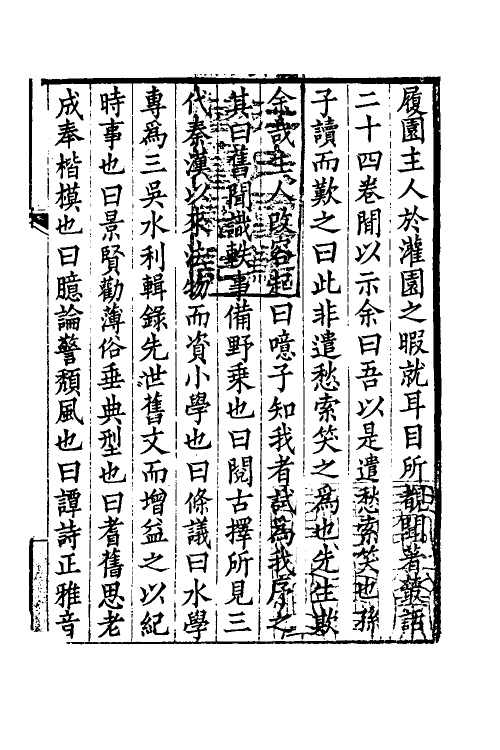 履園主人於灌園之暇就耳目所覩聞著叢話
二十四卷間以示余曰吾以是遣愁索笑也孫
子讀而歎之曰此非遣愁索笑之為也先生欺
余哉主人改容起曰噫子知我者試為我序之
其曰舊聞識軼事備野乘也曰閱古擇所見三
代秦漢以來法物而資小學也曰條議曰水學
專為三吳水利輯錄先世舊文而增益之以紀
時事也曰景賢勸薄俗垂典型也曰耆舊思老
成奉楷模也曰臆論警頹風也曰譚詩正雅音